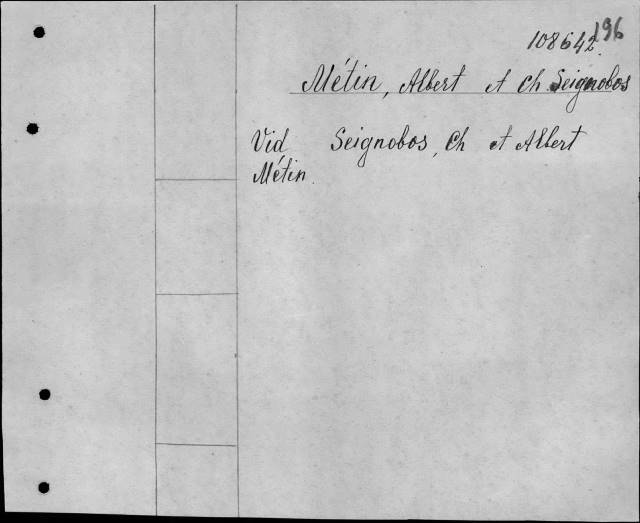 196
108642.
Métin, Albert et Ch Seignobos
Vid Seignobos, Ch et Albert
Métin.